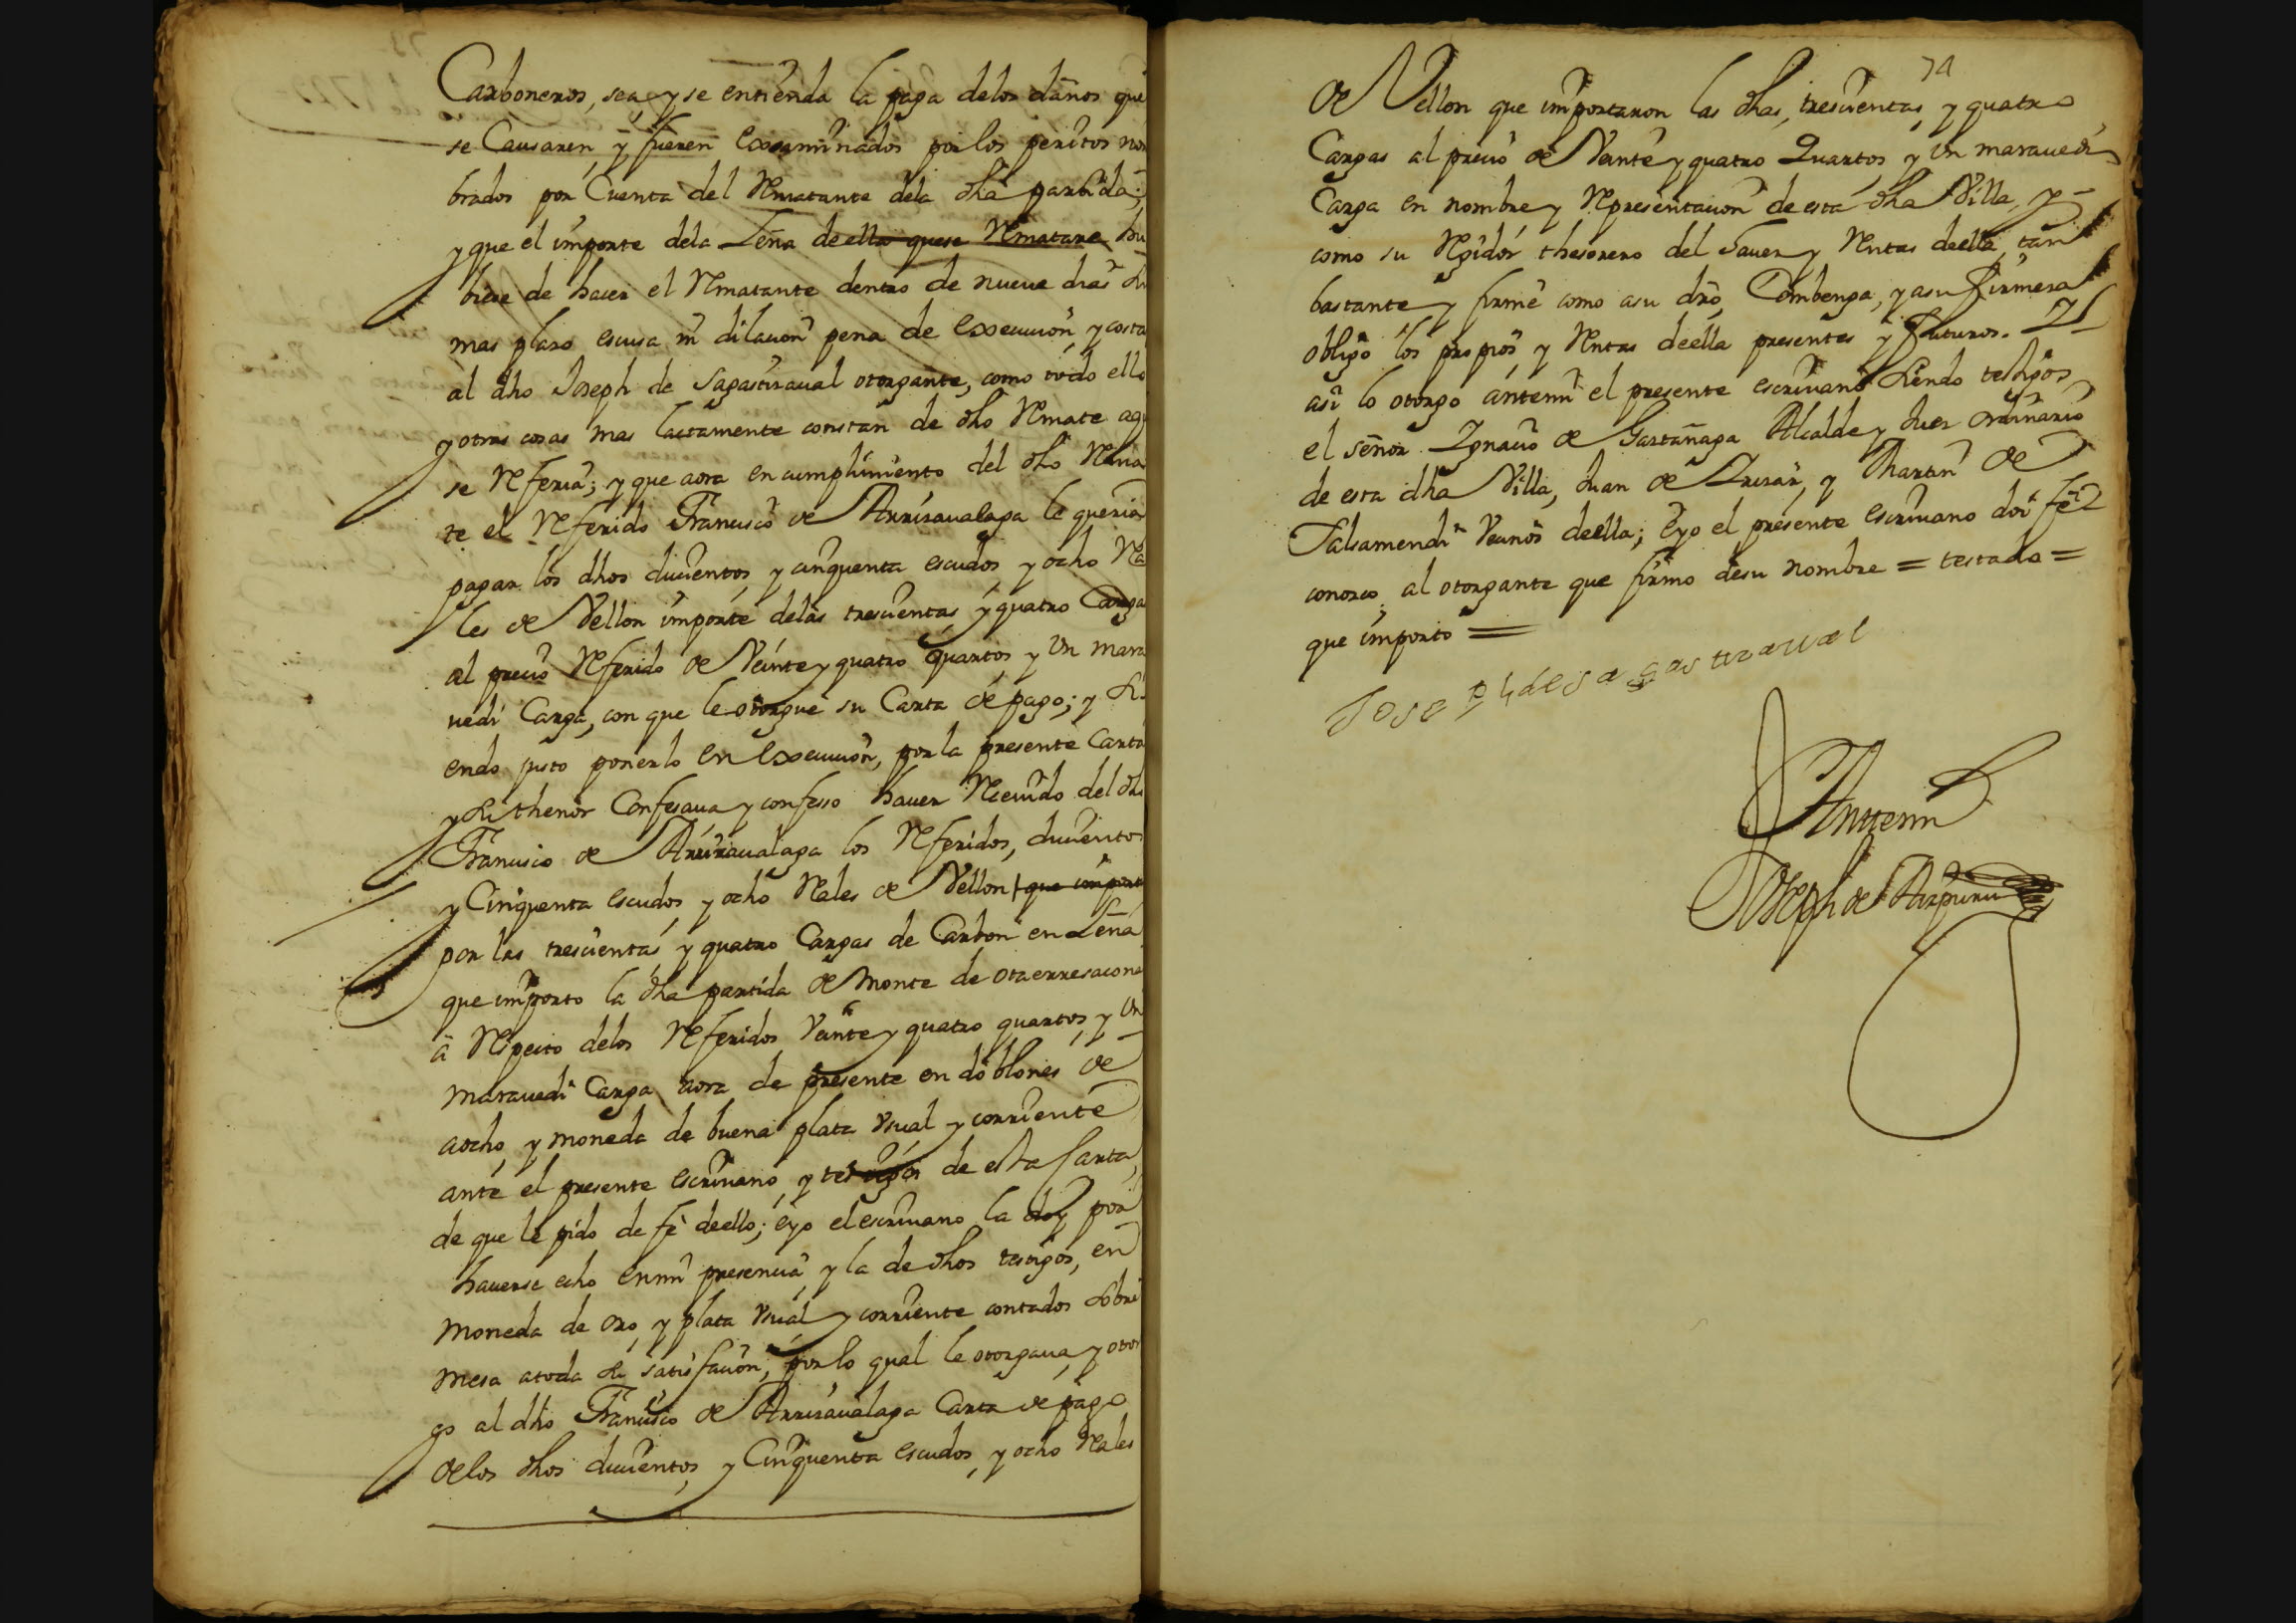 Carboneros, sea, y se entienda la paga delos daños que
se Causaren, y fueren Exsaminados por los peritos nom
brados por Cuenta del Rematante dela dha partida;
y que el importe dela Leña de ella quese Rematare hu
biese de hacer el Rematante dentro de nueue dias sin
mas plazo escusa ni dilacion pena de Execucion, y costas
al dho Joseph de Sagastizaual otorgante, como todo ello
y otras cosas mas lactamente constan de dho Remate aq
se Referia; y que aora en cumplimiento del dho Rema
te el Referido Francisco de Arrizaualaga le queria
pagar los dhos ducientos, y cinquenta escudos, y ocho Rea
les de Vellon importe delas trescientas, y quatro Cargas
al precio Referido de Veinte y quatro quartos, y Un mara
uedi Carga, con que le otorgue su Carta de pago; y si
endo justo ponerlo en Execucion, por la presente Carta
y su thenor Confesaua y confeso hauer Receuido del dho
Francisco de Arrizaualaga los Referidos, ducientos
y Cinquenta escudos, y ocho Reales de Vellon que import
por las trescientas, y quatro Cargas de Carbon en Leña
que importo la dha partida de Monte de otaerresacona
à Respecto delos Referidos Veinte y quatro quartos, y Un
marauedi Carga, aora de presente en doblones de
aocho, y moneda de buena plata Vsual y corriente
ante el presente escriuano, y testigos de esta Carta,
de que le pido de fè deello; èyo el escriuano la doy por
hauerse echo en mi presencia, y la de dhos testigos, en
moneda de oro, y plata Vsual y corriente contados sobre
mesa atoda su satisfacion, por lo qual le otorgaua, y otor
go al dho Francisco de Arrizaualaga Carta de pago
delos dhos ducientos, y Cinquenta escudos, y ocho Reales
74
de Vellon que importaron las dhas, trescientas, y quatro
Cargas al precio de Veinte y quatro Quartos, y Un marauedi
Carga en nombre y Representacion de esta dha Villa, y
como su Regidor thesorero del hauer y Rentas deella, tan
bastante y firme como asu dro, Combenga, y asu firmesa
obligo los propios, y Rentas deella presentes y futuros.
asi lo otorgo antemi el presente escriuano siendo testigos
el señor Ignacio de Gastañaga Alcalde y Juez ordinario
de esta dha Villa, Juan de, y Martin de
Salsamendi Vecinos deella; èyo el presente escriuano doi fè
conozco al otorgante que firmo desu nombre = testado =
que importo =
Joseph de sagastizaual
Antemi
Joseph de Aizpuru